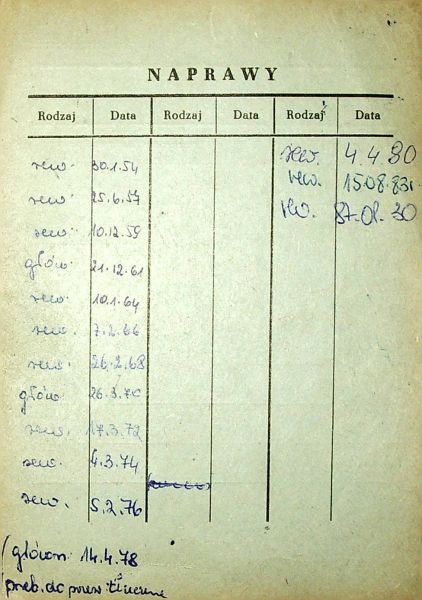 NAPRAWY
Rodzaj Data Rodzaj Data Rodzaj Data
rew. 30.1.54 rew. 4.4.80
rew. 25.6.57 rew. 15.08.83r.
rew. 10.12.59 rew. 87.01.30
głów. 21.12.61
rew. 10.1.64
rew. 7.2.66
rew. 26.2.68
głów. 26.3.70
rew. 17.3.72
rew. 4.3.74
rew. 5.2.76
(główn. 14.4.78